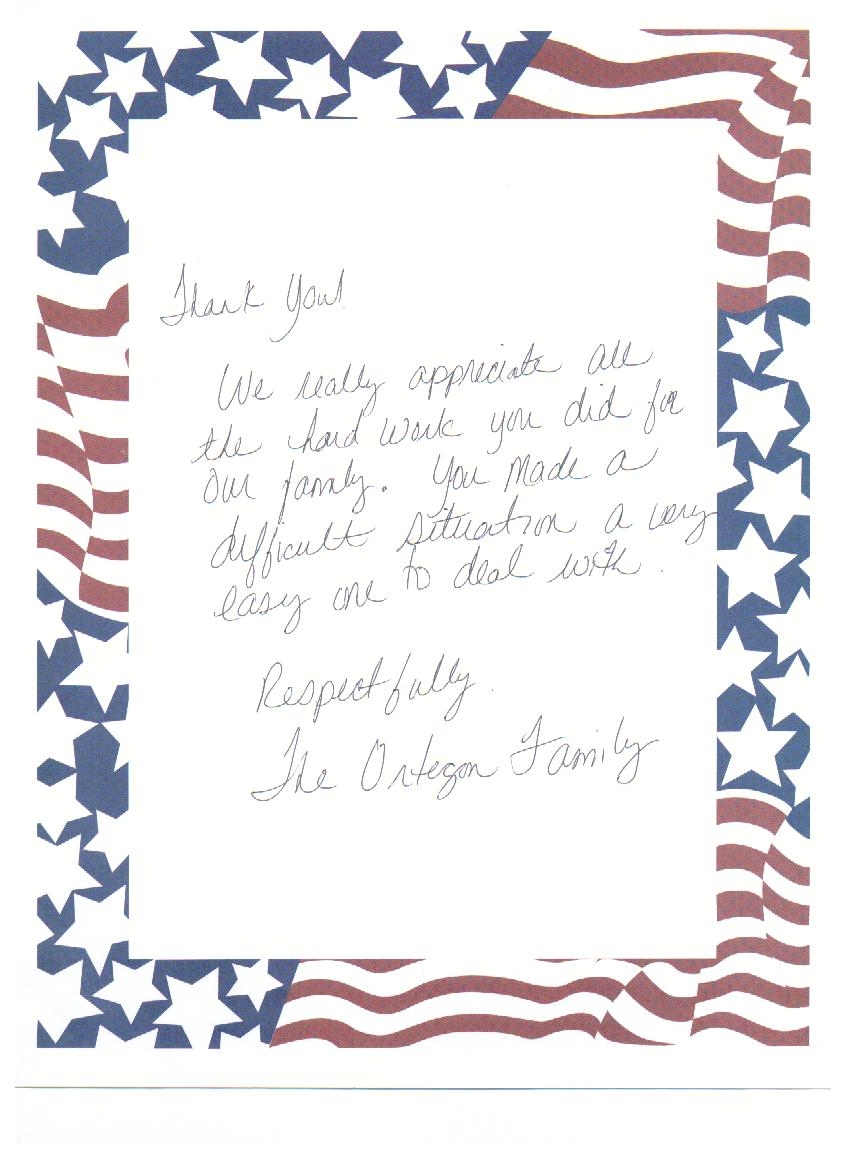 Thank You!
We really appreciate all
the hard work you did for
our family. You made a
difficult situation a very
easy one to deal with.
Respectfully.
The Ortegon Family